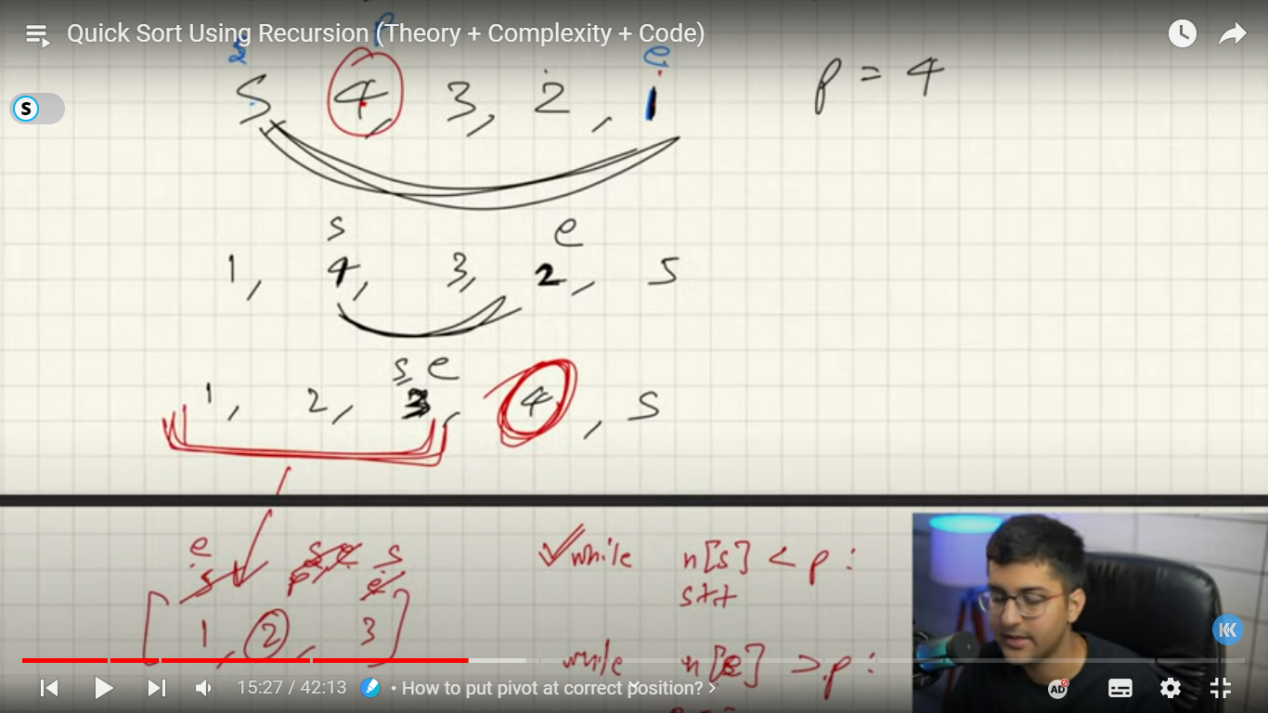 Quick Sort Using Recursion (Theory + Complexity + Code)
s p e
5, 4, 3, 2, 1
p = 4
s e
1, 4, 3, 2, 5
s, e
1, 2, 3, 4, 5
e s
1, 2, 3
while n[s] < p :
s++
while n[e] > p :
15:27 / 42:13 • How to put pivot at correct position? >
S
KK
AD